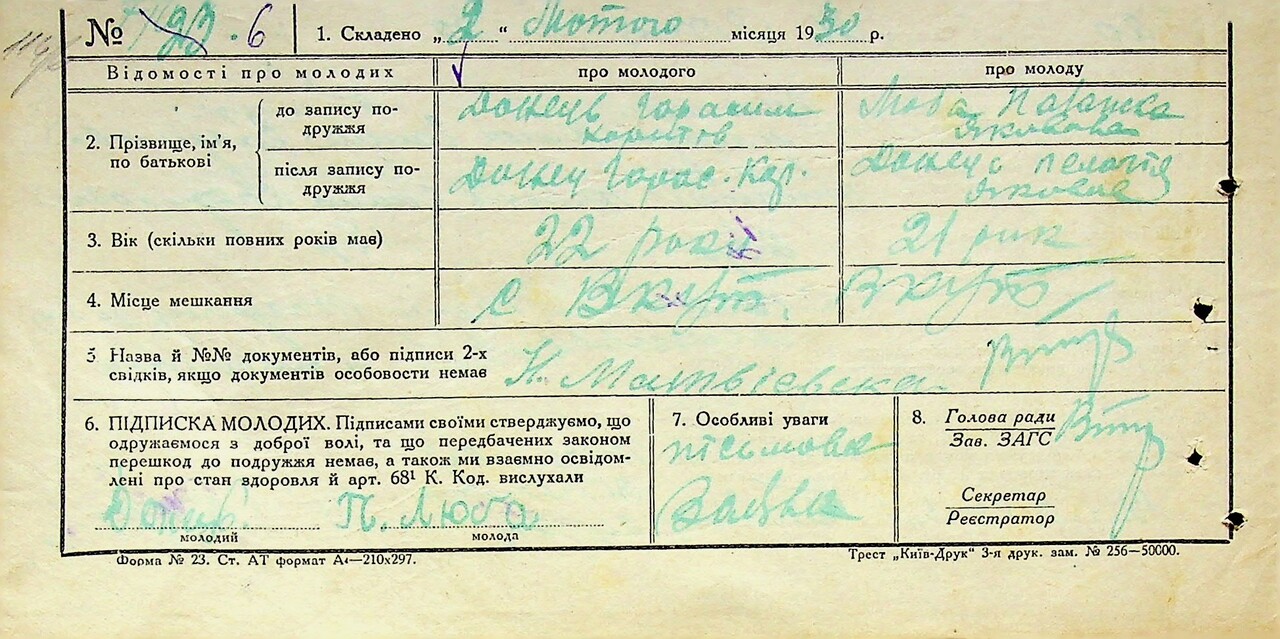 № 6
1. Складено „2“ Лютого місяця 1930 р.
Відомості про молодих
про молодого
про молоду
2. Прізвище, ім'я, по батькові
до запису подружжя
Донець Горасим
Мова Параска
Якововна
після запису подружжя
Донец Горас. Хар.
Донец Пелагія
Яковов
3. Вік (скільки повних років має)
22 роки
21 рик
4. Місце мешкання
с Вкут.
Вкут
5 Назва й №№ документів, або підписи 2-х
свідків, якщо документів особовости немає
Н. Матвієвска
6. ПІДПИСКА МОЛОДИХ. Підписами своїми стверджуємо, що
одружаємося з доброї волі, та що передбачених законом
перешкод до подружжя немає, а також ми взаємно освідом-
лені про стан здоров'я й арт. 68¹ К. Код. вислухали
П. Люба
молодий
молода
7. Особливі уваги
письмова
Заява
8. Голова ради
Зав. ЗАГС
Секретар
Реєстратор
Форма № 23. Ст. АТ формат А4—210х297.
Трест „Київ-Друк“ 3-я друк. зам. № 256—50000.